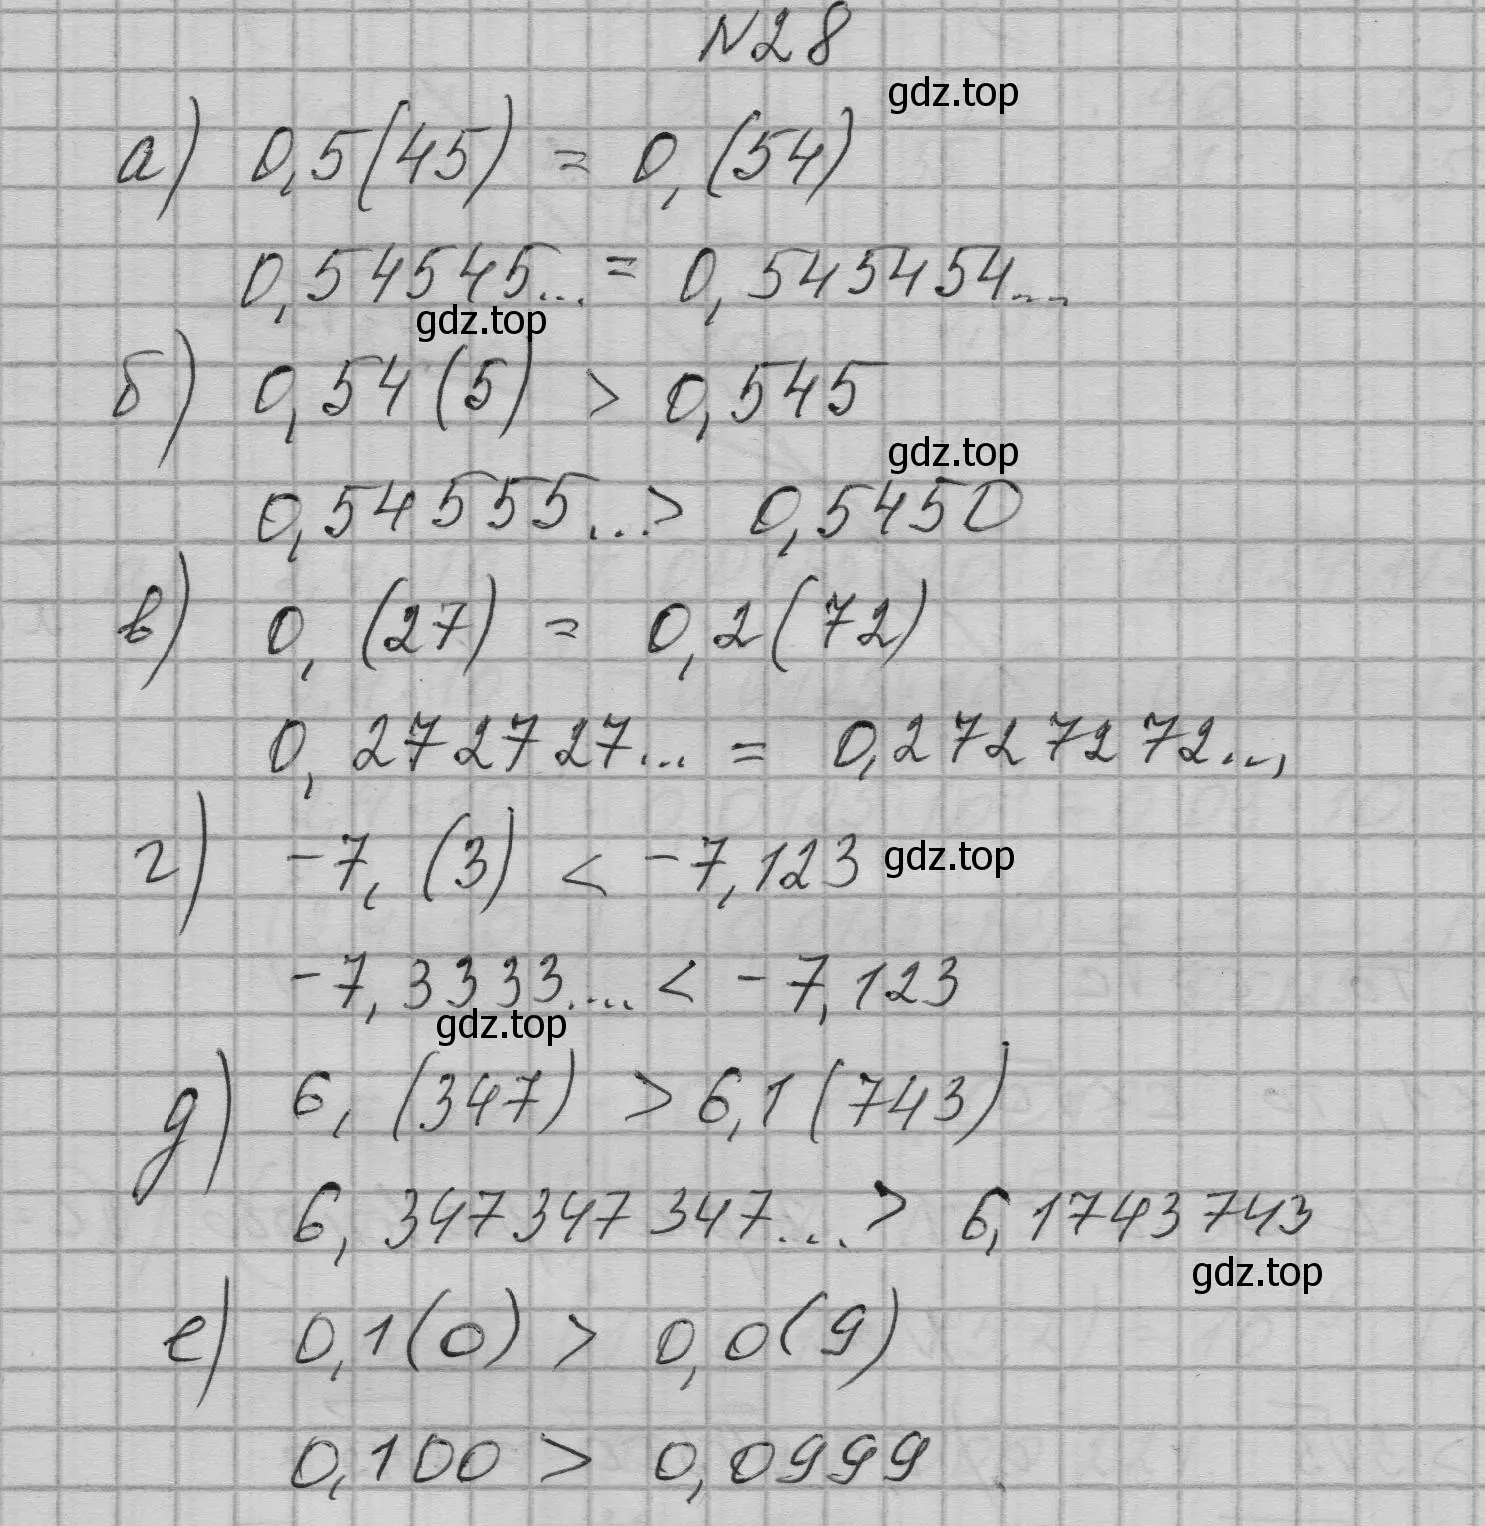 N28
gdz.top
а) 0,5(45) = 0,(54)
0,54545... = 0,545454...
gdz.top
б) 0,54(5) > 0,545
gdz.top
0,54555... > 0,5450
в) 0,(27) = 0,2(72)
0,272727... = 0,2727272...,
г) -7,(3) < -7,123 gdz.top
-7,3333.... < -7,123
gdz.top
д) 6,(347) > 6,1(743)
6,347347347.... > 6,1743743
gdz.top
е) 0,1(0) > 0,0(9)
0,100 > 0,0999